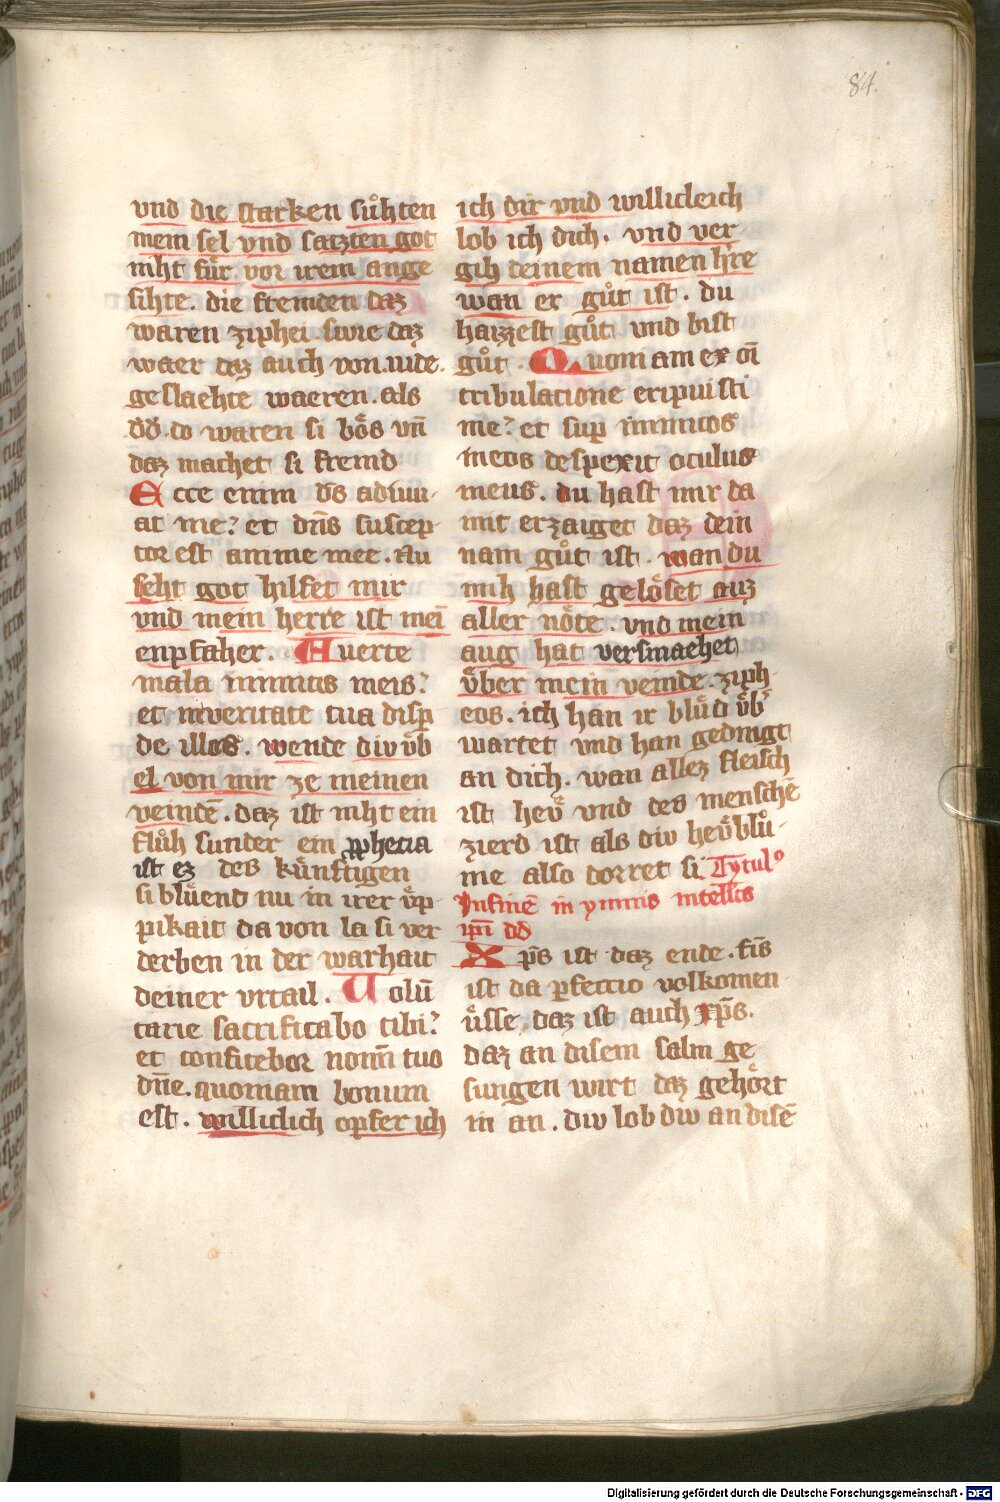 84.
vnd die starken sůhten
mein sel vnd satzten got
niht für. vor irem ange
sihte. die fremden daz
waren ziphei. swie daz
waer daz auch von .iude.
geslaehte waeren. als
dd̄. do waren si bös vn̄
daz machet si fremd
Ecce enim ds̄ adiuu-
at me? et dn̄s suscep-
tor est anime mee. Nu
seht got hilfet mir
vnd mein herre ist mei
enpfaher. Auerte
mala inimicis meis?
et in veritate tua disp̄
de illos. wende div v̈b
el von mir ze meinen
veindē. daz ist niht ein
flůh sunder ein ꝓphecia
ist ez des künftigen
si blüend nu in irer v̈p-
pikait da von la si ver
derben in der warhait
deiner vrtail. Uolū
tarie sacrificabo tibi?
et confitebor nomī tuo
dn̄e. quoniam bonum
est. williclich opfer ich
ich dir vnd willicleich
lob ich dich. vnd ver-
gih deinem namen h're
wan er gůt ist. du
haizzest gůt vnd bist
gůt. Quoniam ex oī
tribulatione eripuisti
me? et sup̄ inimicos
meos despexit oculus
meus. du hast mir da
mit erzaiget daz dein
nam gůt ist. wan du
mih hast gelöset auz
aller nöte. vnd mein
aug hat versmaehet
v̈ber mein veinde. ziph-
eos. ich han ir blůd v̈b'
wartet vnd han gedingt
an dich. wan allez fleisch
ist hev̈ vnd des menschē
zierd ist als div hev̈blů-
me also dorret si. Tytul9
In finē in ymnis intell̄cs
ip̄i dd̄
Xp̄s ist daz ende. fīs
ist da ꝑfectio volkomen-
üsse, daz ist auch xp̄s.
daz an disem salm ge
sungen wirt daz gehört
in an. div lob div an disē
Digitalisierung gefördert durch die Deutsche Forschungsgemeinschaft - DFG